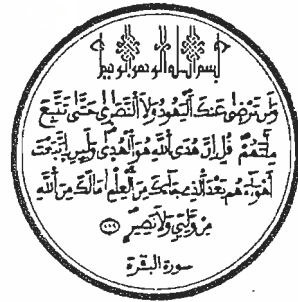 بسم الله الرحمن الرحيم
وَلَن تَرْضَىٰ عَنكَ الْيَهُودُ وَلَا النَّصَارَىٰ حَتَّىٰ تَتَّبِعَ
مِلَّتَهُمْ قُلْ إِنَّ هُدَى اللَّهِ هُوَ الْهُدَىٰ وَلَئِنِ اتَّبَعْتَ
أَهْوَاءَهُم بَعْدَ الَّذِي جَاءَكَ مِنَ الْعِلْمِ مَا لَكَ مِنَ اللَّهِ
مِن وَلِيٍّ وَلَا نَصِيرٍ
سورة البقرة